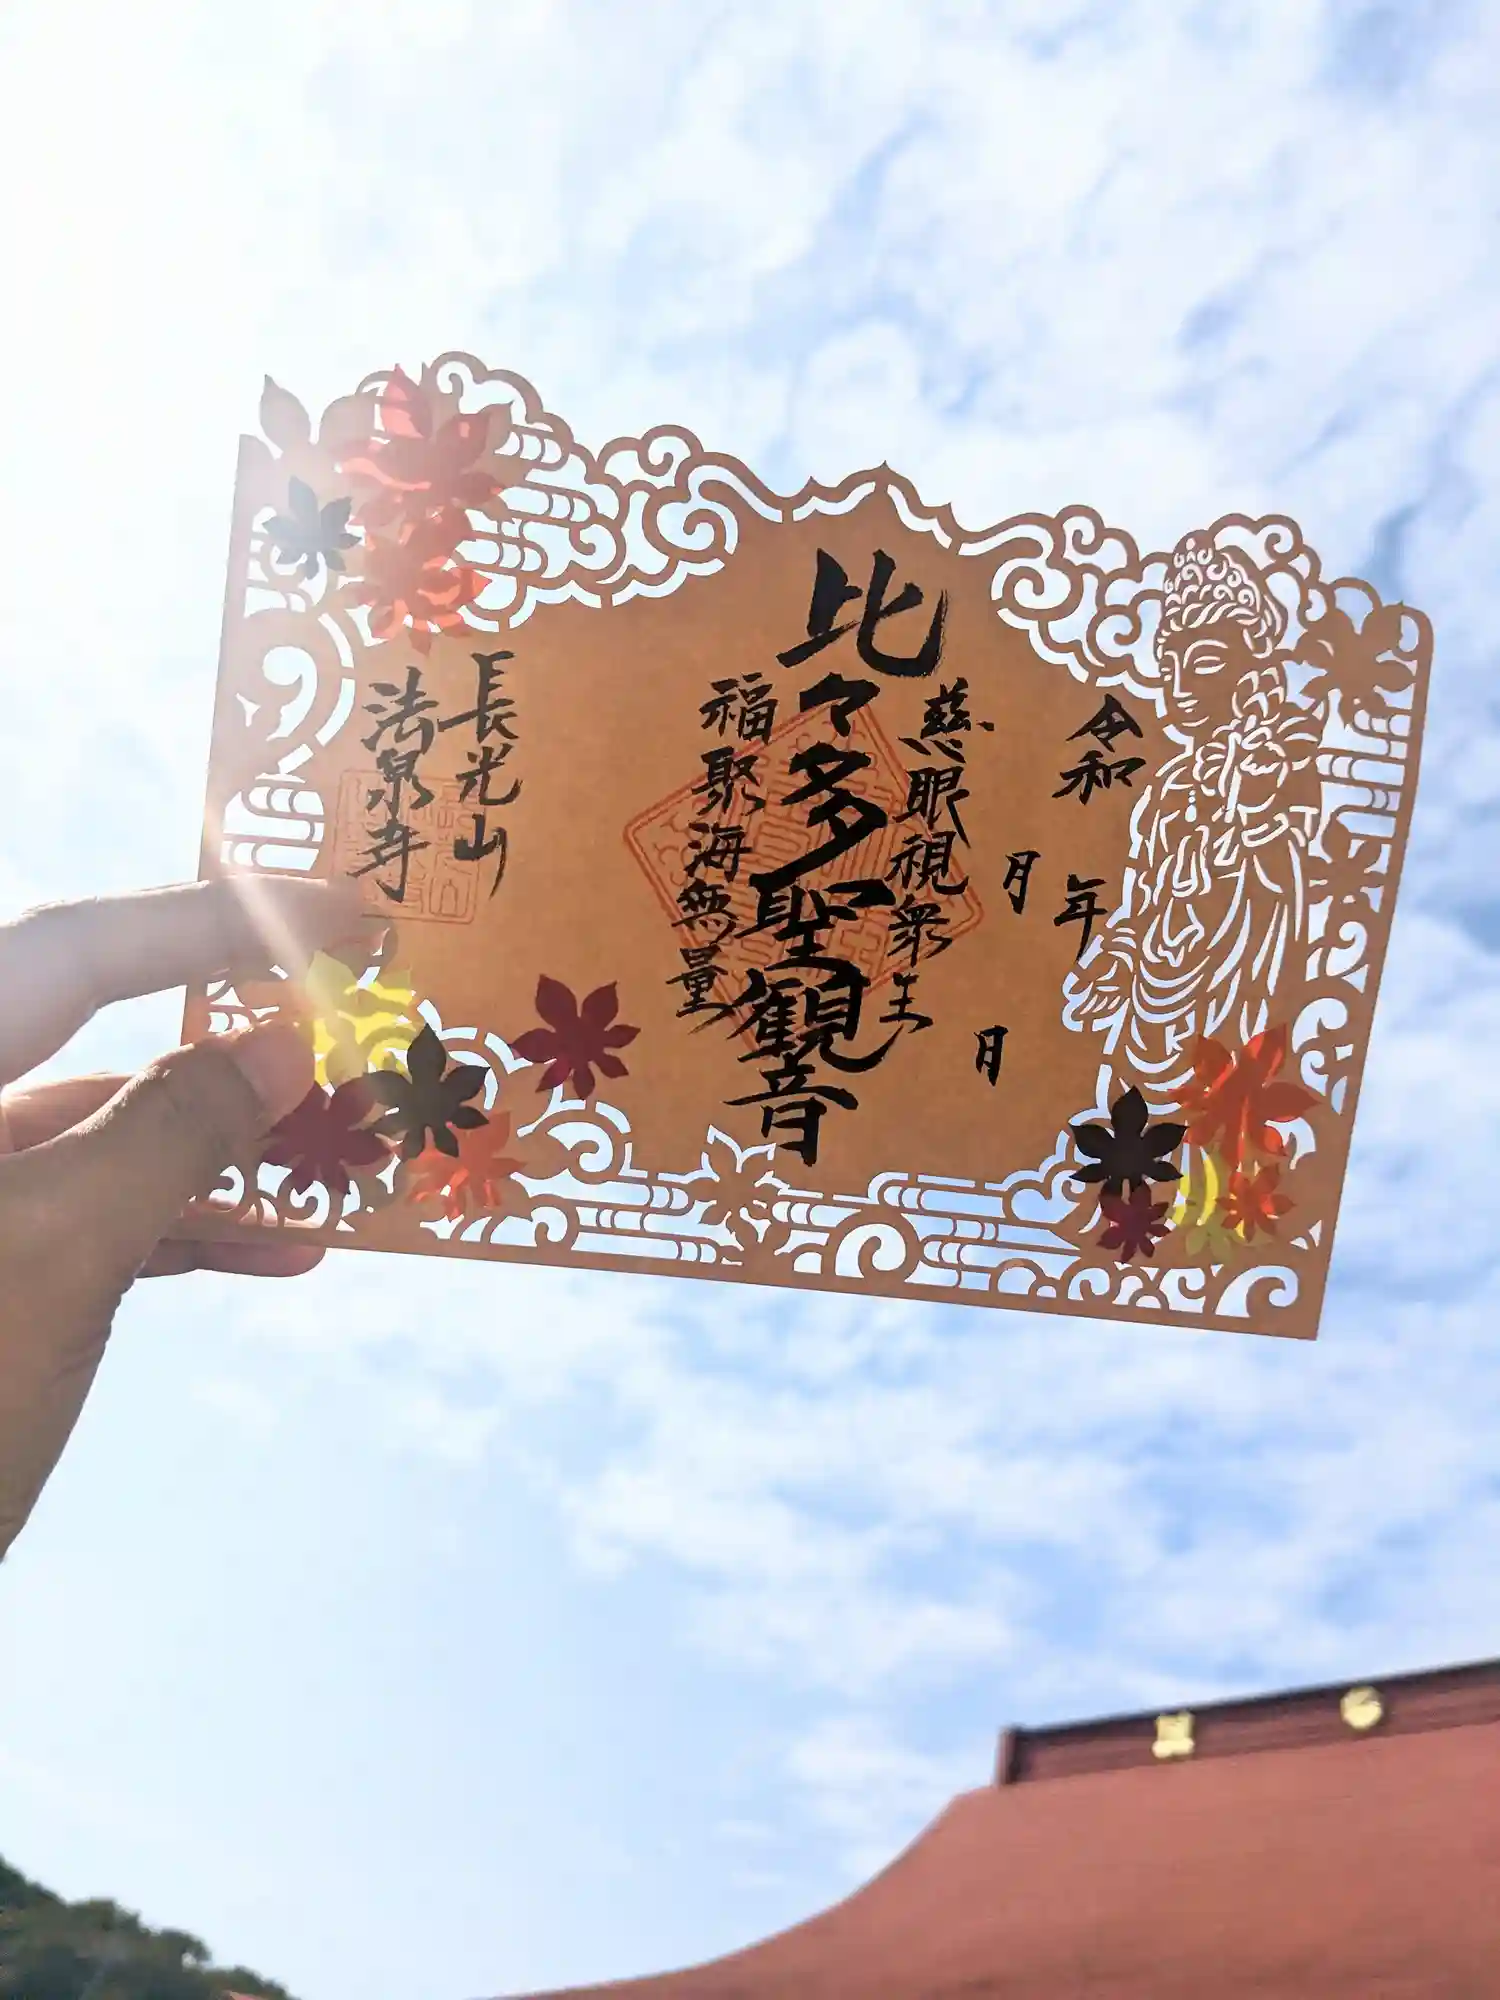 令和 年
月 日
慈眼視衆生
比々多聖観音
福聚海無量
長光山
法泉寺